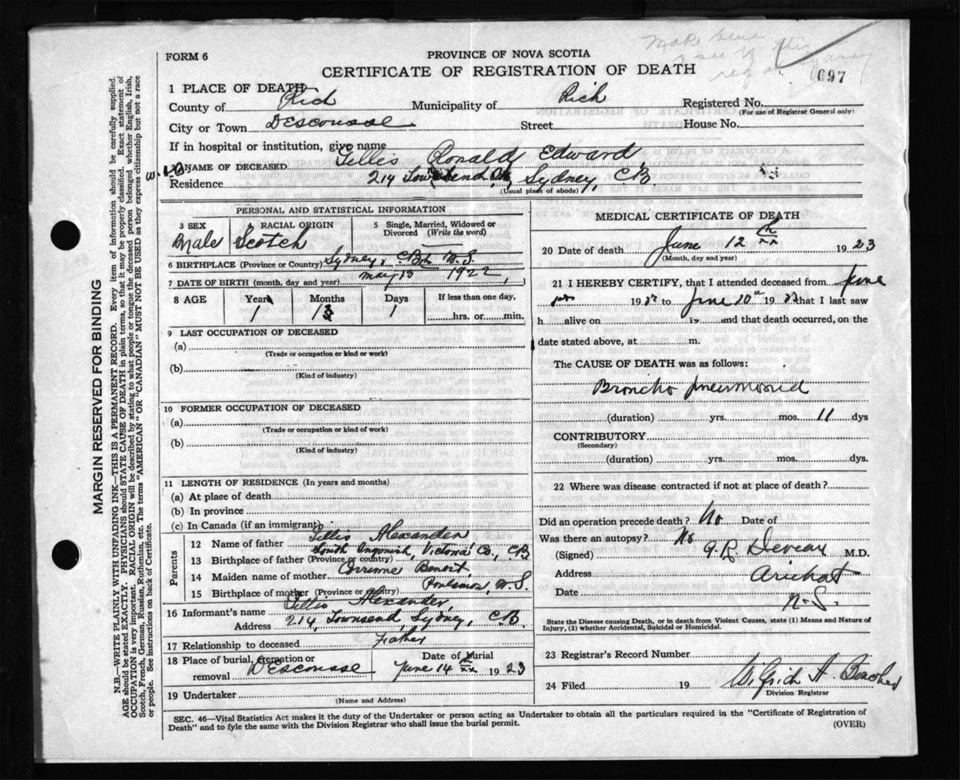 FORM 6
PROVINCE OF NOVA SCOTIA
CERTIFICATE OF REGISTRATION OF DEATH
697
1 PLACE OF DEATH
County of Rich Municipality of Rich Registered No.
(For use of Registrar General only)
City or Town Descousse Street House No.
If in hospital or institution, give name
2 NAME OF DECEASED Gillis Ronald Edward
Residence 214 Townsend St Sydney, CB.
(Usual place of abode)
PERSONAL AND STATISTICAL INFORMATION
3 SEX Male
RACIAL ORIGIN Scotch
5 Single, Married, Widowed or Divorced (Write the word)
6 BIRTHPLACE (Province or Country) Sydney, CB N.S.
7 DATE OF BIRTH (month, day and year) May 13 1922
8 AGE Years Months Days If less than one day,
1 1 hrs. or min.
9 LAST OCCUPATION OF DECEASED
(a)
(Trade or occupation or kind or work)
(b)
(Kind of industry)
10 FORMER OCCUPATION OF DECEASED
(a)
(Trade or occupation or kind of work)
(b)
(Kind of industry)
11 LENGTH OF RESIDENCE (In years and months)
(a) At place of death
(b) In province
(c) In Canada (if an immigrant)
Parents
12 Name of father Gillis Alexander
13 Birthplace of father (Province or country) South Ingonish, Victoria Co., CB
14 Maiden name of mother Corrinne Benoit
15 Birthplace of mother (Province or country) N.S.
16 Informant's name Gillis Alexander,
Address 214, Townsend Sydney, CB.
17 Relationship to deceased Father
18 Place of burial, cremation or removal Descousse Date of burial June 14 1923
19 Undertaker
(Name and Address)
MEDICAL CERTIFICATE OF DEATH
20 Date of death June 12th 1923
(Month, day and year)
21 I HEREBY CERTIFY, that I attended deceased from June
19 to June 19 that I last saw
h alive on 19 and that death occurred, on the
date stated above, at m.
The CAUSE OF DEATH was as follows:
Broncho pneumonia
(duration) yrs. mos. 11 dys
CONTRIBUTORY
(Secondary)
(duration) yrs. mos. dys.
22 Where was disease contracted if not at place of death?
Did an operation precede death? No Date of
Was there an autopsy? No
(Signed) M.D.
Address Arichat
Date N.S.
State the Disease causing Death, or in death from Violent Causes, state (1) Means and Nature of Injury, (2) whether Accidental, Suicidal or Homicidal.
23 Registrar's Record Number
24 Filed 19
Division Registrar
SEC. 46—Vital Statistics Act makes it the duty of the Undertaker or person acting as Undertaker to obtain all the particulars required in the "Certificate of Registration of
Death" and to fyle the same with the Division Registrar who shall issue the burial permit. (OVER)
MARGIN RESERVED FOR BINDING
N.B—WRITE PLAINLY WITH UNFADING INK—THIS IS A PERMANENT RECORD. Every item of information should be carefully supplied.
AGE should be stated EXACTLY. PHYSICIANS should STATE CAUSE OF DEATH in plain terms, so that it may be properly classified. Exact statement of
OCCUPATION is very important. RACIAL ORIGIN will be described by stating to what people or tongue the deceased person belonged whether English, Irish,
Scotch, French, German, Russian, Ruthenian, etc. The terms "AMERICAN" or "CANADIAN" MUST NOT BE USED as they express citizenship but not a race
or people. See instructions on back of Certificate.